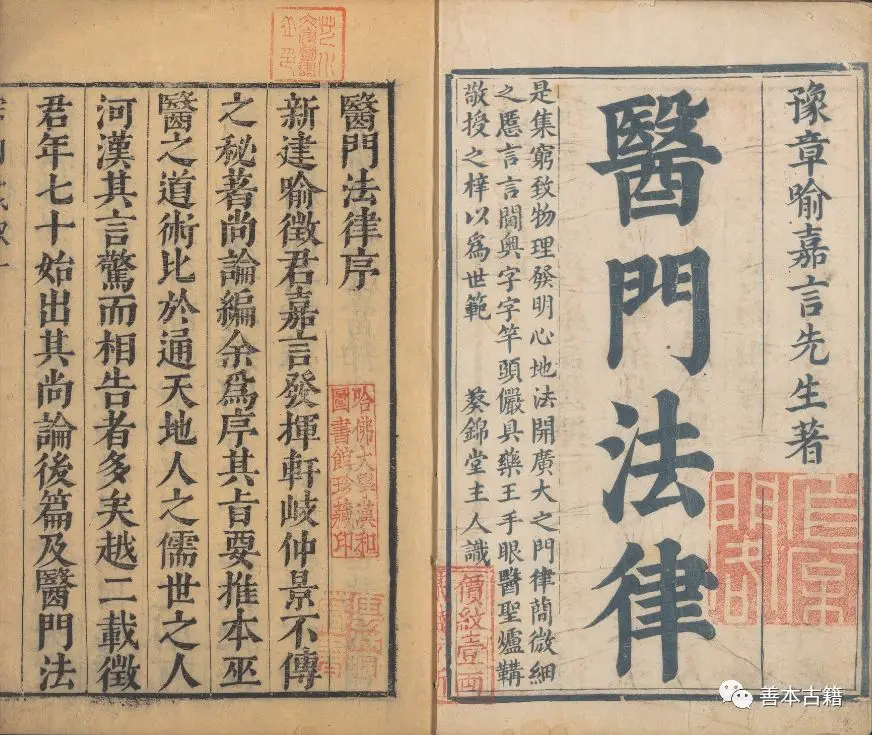 豫章喻嘉言先生著
醫門法律
是集窮致物理發明心地法開廣大之門律簡微細
之愆言言閫奧字字竿頭儼具藥王手眼醫聖爐鞲
敬授之梓以爲世範 葵錦堂主人識
價紋壹両
醫門法律序
新建喻徵君嘉言發揮軒岐仲景不傳
之秘著尚論編余爲序其旨要推本巫
醫之道術比於通天地人之儒世之人
河漢其言驚而相告者多矣越二載徵
君年七十始出其尚論後篇及醫門法
哈佛大學漢和
圖書館珍藏印
善本古籍